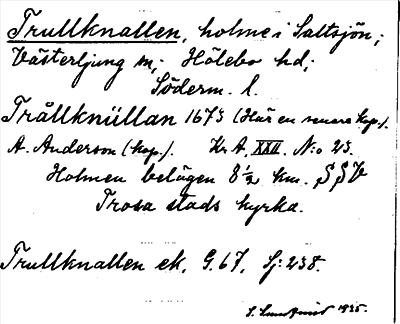 Trullknallen, holme i Saltsjön,
Västerljung sn, Hölebo hd,
Söderm. l.
Trållknüllan 1675 (Här en senare kop.).
A. Anderson (kop.). Kr A. XXII. N:o 23.
Holmen belägen 8 1/2 km. SSV
Trosa stads kyrka.
Trullknallen ek. G. 67, Sj: 238.
1935.